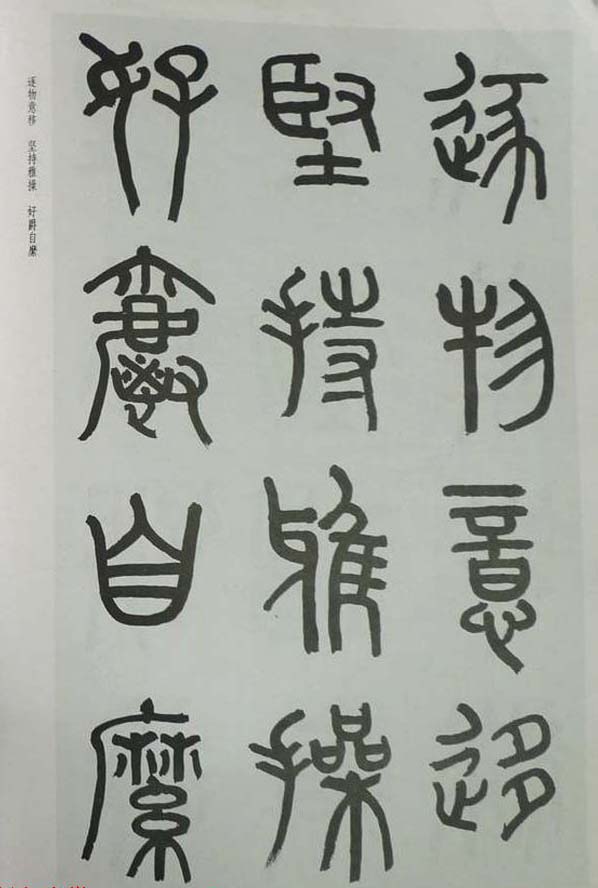 逐物意迻
堅持雅操
好爵自縻
逐物意移　坚持雅操　好爵自縻